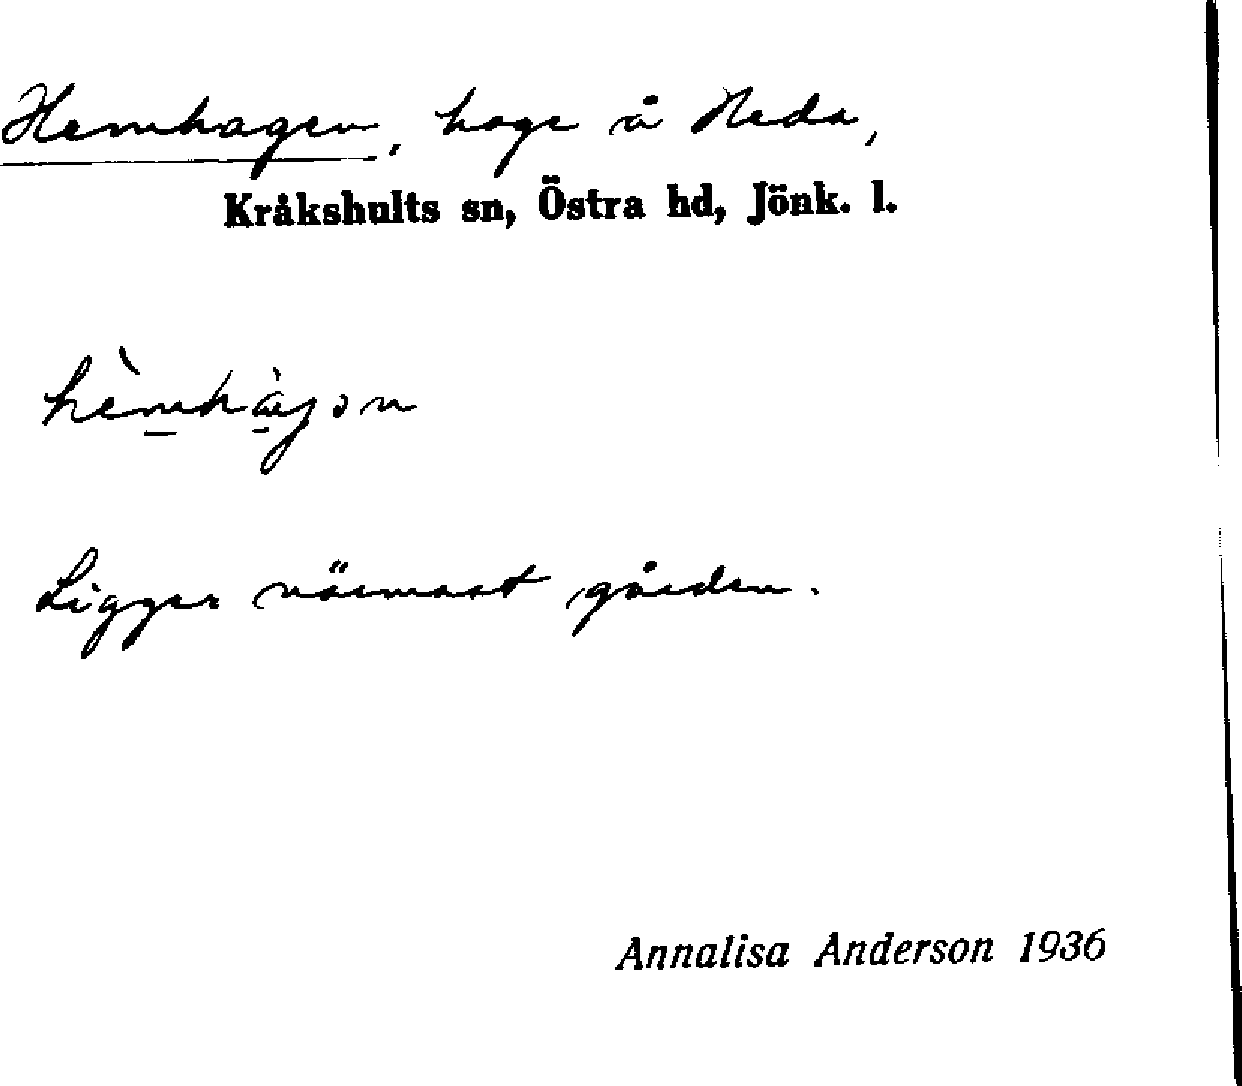 Hemhagen, hage å Heda,
Kråkshults sn, Östra hd, Jönk. l.
Ligger närmast gården.
Annalisa Anderson 1936